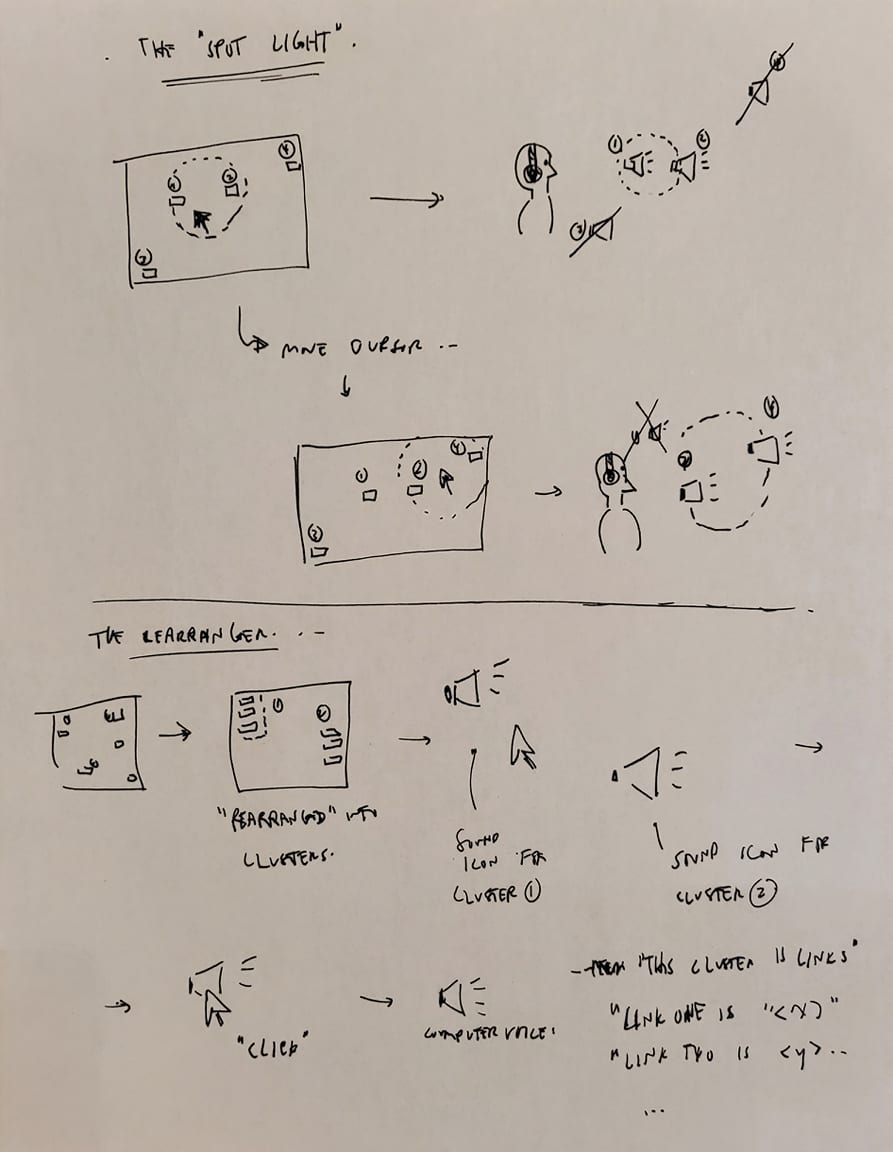 . THE "SPOT LIGHT" .
① ②
④
③
① ②
④
③
MOVE CURSOR ..
④
① ②
③
④
②
THE REARRANGER. . -
①
②
"REARRANGED" INTO
CLUSTERS.
SOUND
ICON FOR
CLUSTER ①
SOUND ICON FOR
CLUSTER ②
"CLICK"
COMPUTER VOICE:
"THIS CLUSTER IS LINKS"
"LINK ONE IS "<X>"
"LINK TWO IS <Y>..
...